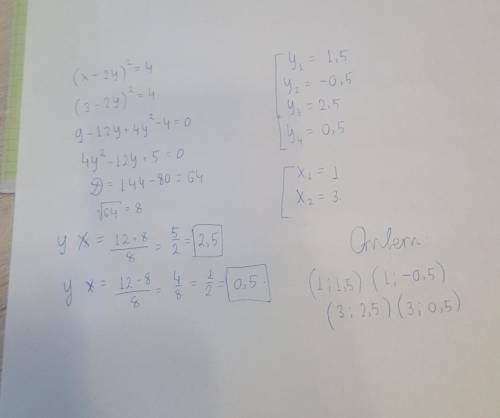 (x-2y)²=4
(3-2y)²=4
9-12y+4y²-4=0
4y²-12y+5=0
D=144-80=64
√64=8
y x = 12+8/8 = 5/2 = 2,5
y x = 12-8/8 = 4/8 = 1/2 = 0,5.
y₁ = 1,5
y₂ = -0,5
y₃ = 2,5
y₄ = 0,5
x₁ = 1
x₂ = 3.
Ответ:
(1;1,5) (1; -0,5)
(3; 2,5) (3; 0,5)